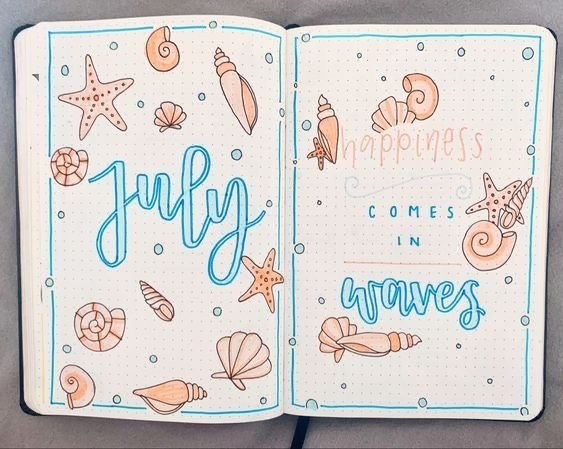 July
happiness
COMES
IN
waves